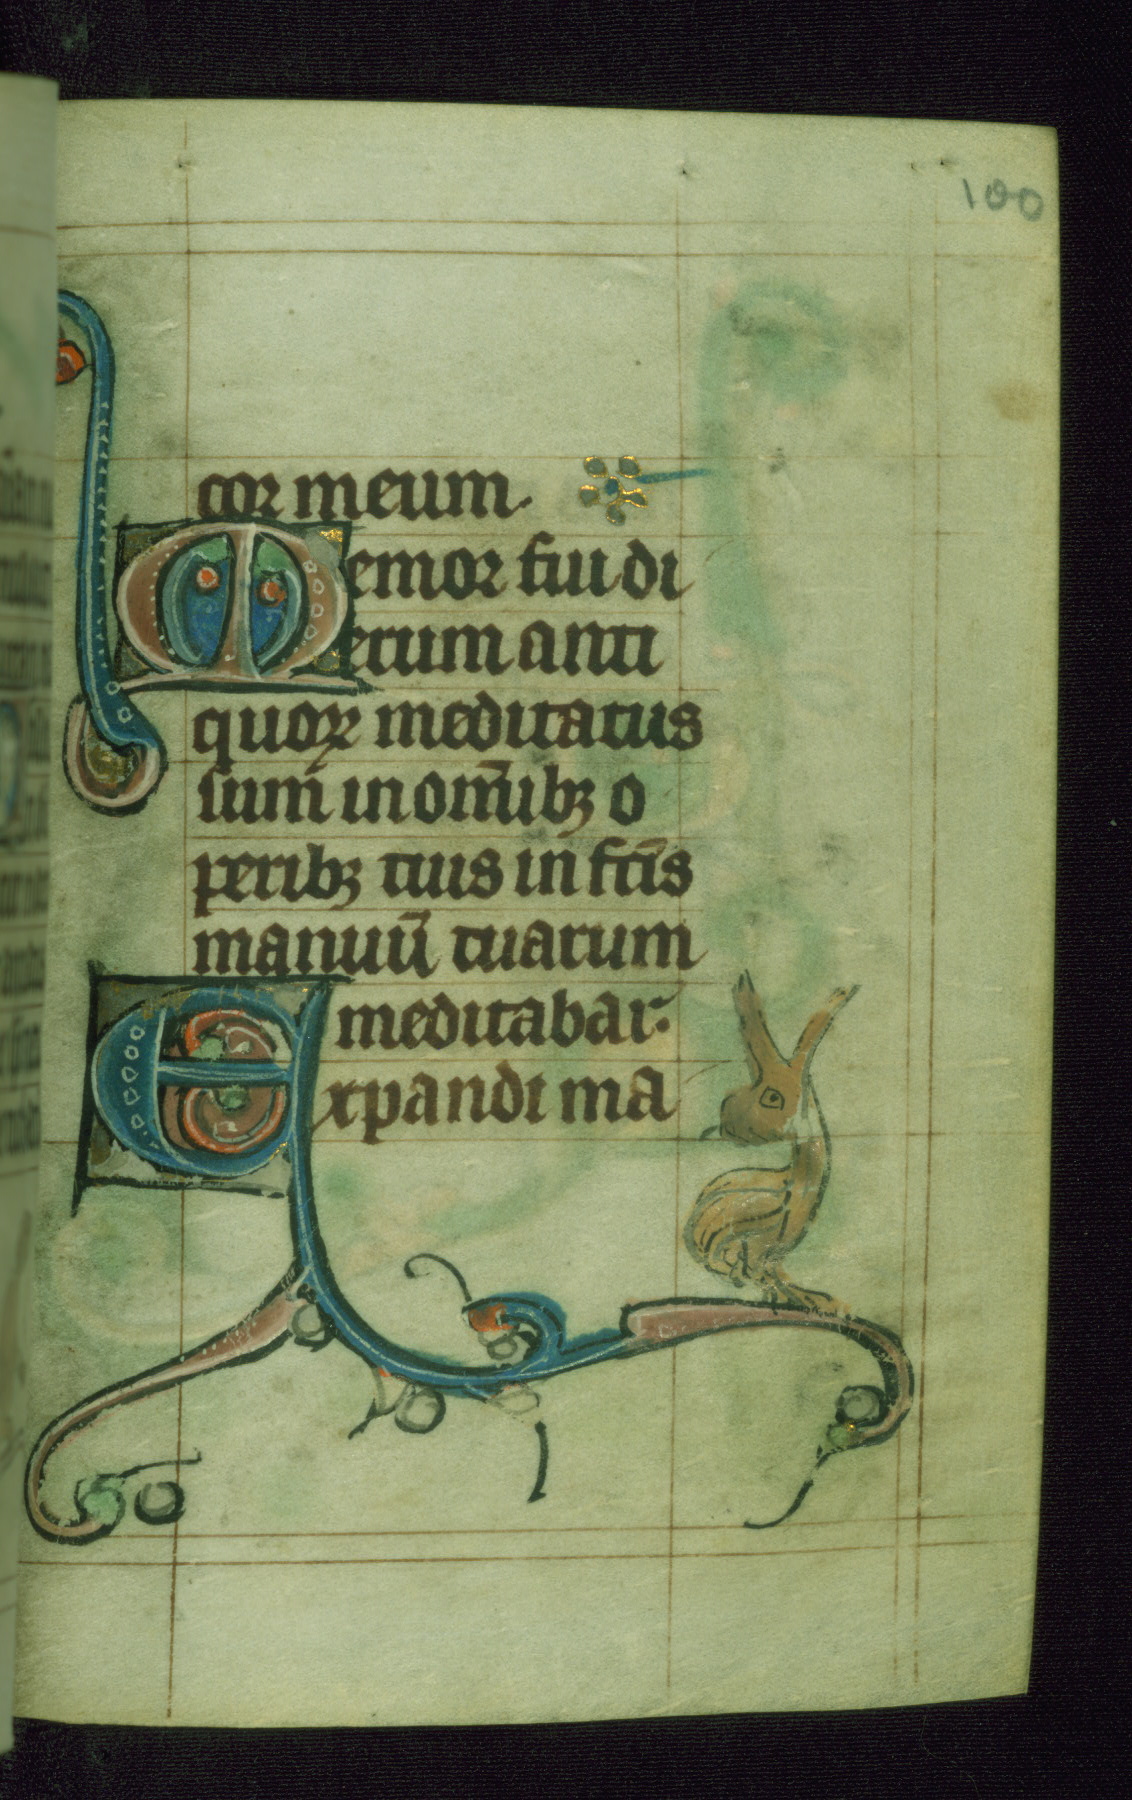 100
cor meum.
Memor fui di
erum anti
quoꝝ meditatus
sum in om̄ibꝫ o
peribꝫ tuis in fc̄is
manuū tuarum
meditabar.
Expandi ma